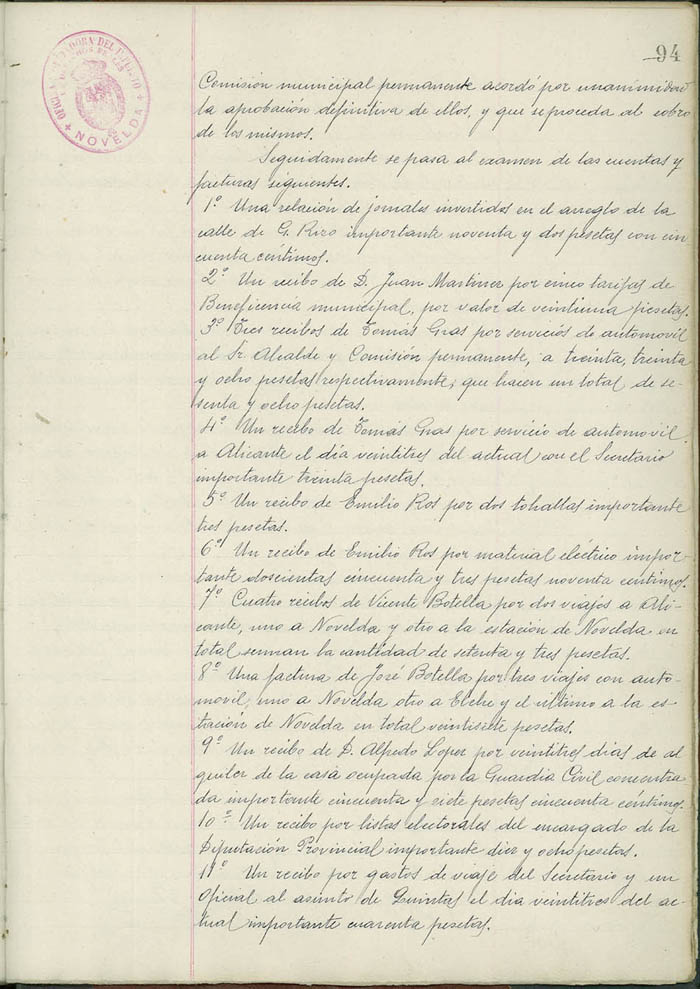 94
NOVELDA
Comisión municipal permanente acordó por unanimidad
la aprobación definitiva de ellos, y que se proceda al cobro
de los mismos.
Seguidamente se pasa al examen de las cuentas y
facturas siguientes.
1º Una relación de jornales invertidos en el arreglo de la
calle de G. Rizo importante noventa y dos pesetas con cin
cuenta céntimos.
2º Un recibo de D. Juan Martinez por cinco tarifas de
Beneficencia municipal, por valor de veintiuna pesetas.
3º Tres recibos de Tomás Gras por servicios de automovil
al Sr. Alcalde y Comisión permanente, a treinta, treinta
y ocho pesetas respectivamente, que hacen un total de se-
senta y ocho pesetas.
4º Un recibo de Tomás Gras por servicio de automovil
a Alicante el día veintitres del actual con el Secretario
importante treinta pesetas.
5º Un recibo de Emilio Ros por dos tohallas importante
tres pesetas.
6º Un recibo de Emilio Ros por material eléctrico impor-
tante doscientas cincuenta y tres pesetas noventa centimos.
7º Cuatro recibos de Vicente Botella por dos viajes a Ali-
cante, uno a Novelda y otro a la estación de Novelda en
total suman la cantidad de setenta y tres pesetas.
8º Una factura de José Botella por tres viajes con auto-
movil, uno a Novelda otro a Elche y el último a la es-
tación de Novelda en total veintisiete pesetas.
9º Un recibo de D. Alfredo Lopez por veintitres dias de al
quiler de la casa ocupada por la Guardia Civil concentra
da importante cincuenta y siete pesetas cincuenta céntimos.
10º Un recibo por listas electorales del encargado de la
Diputación Provincial importante diez y ocho pesetas.
11º Un recibo por gastos de viaje del Secretario y un
Oficial al asunto de Quintas el dia veintitres del ac-
tual importante cuarenta pesetas.